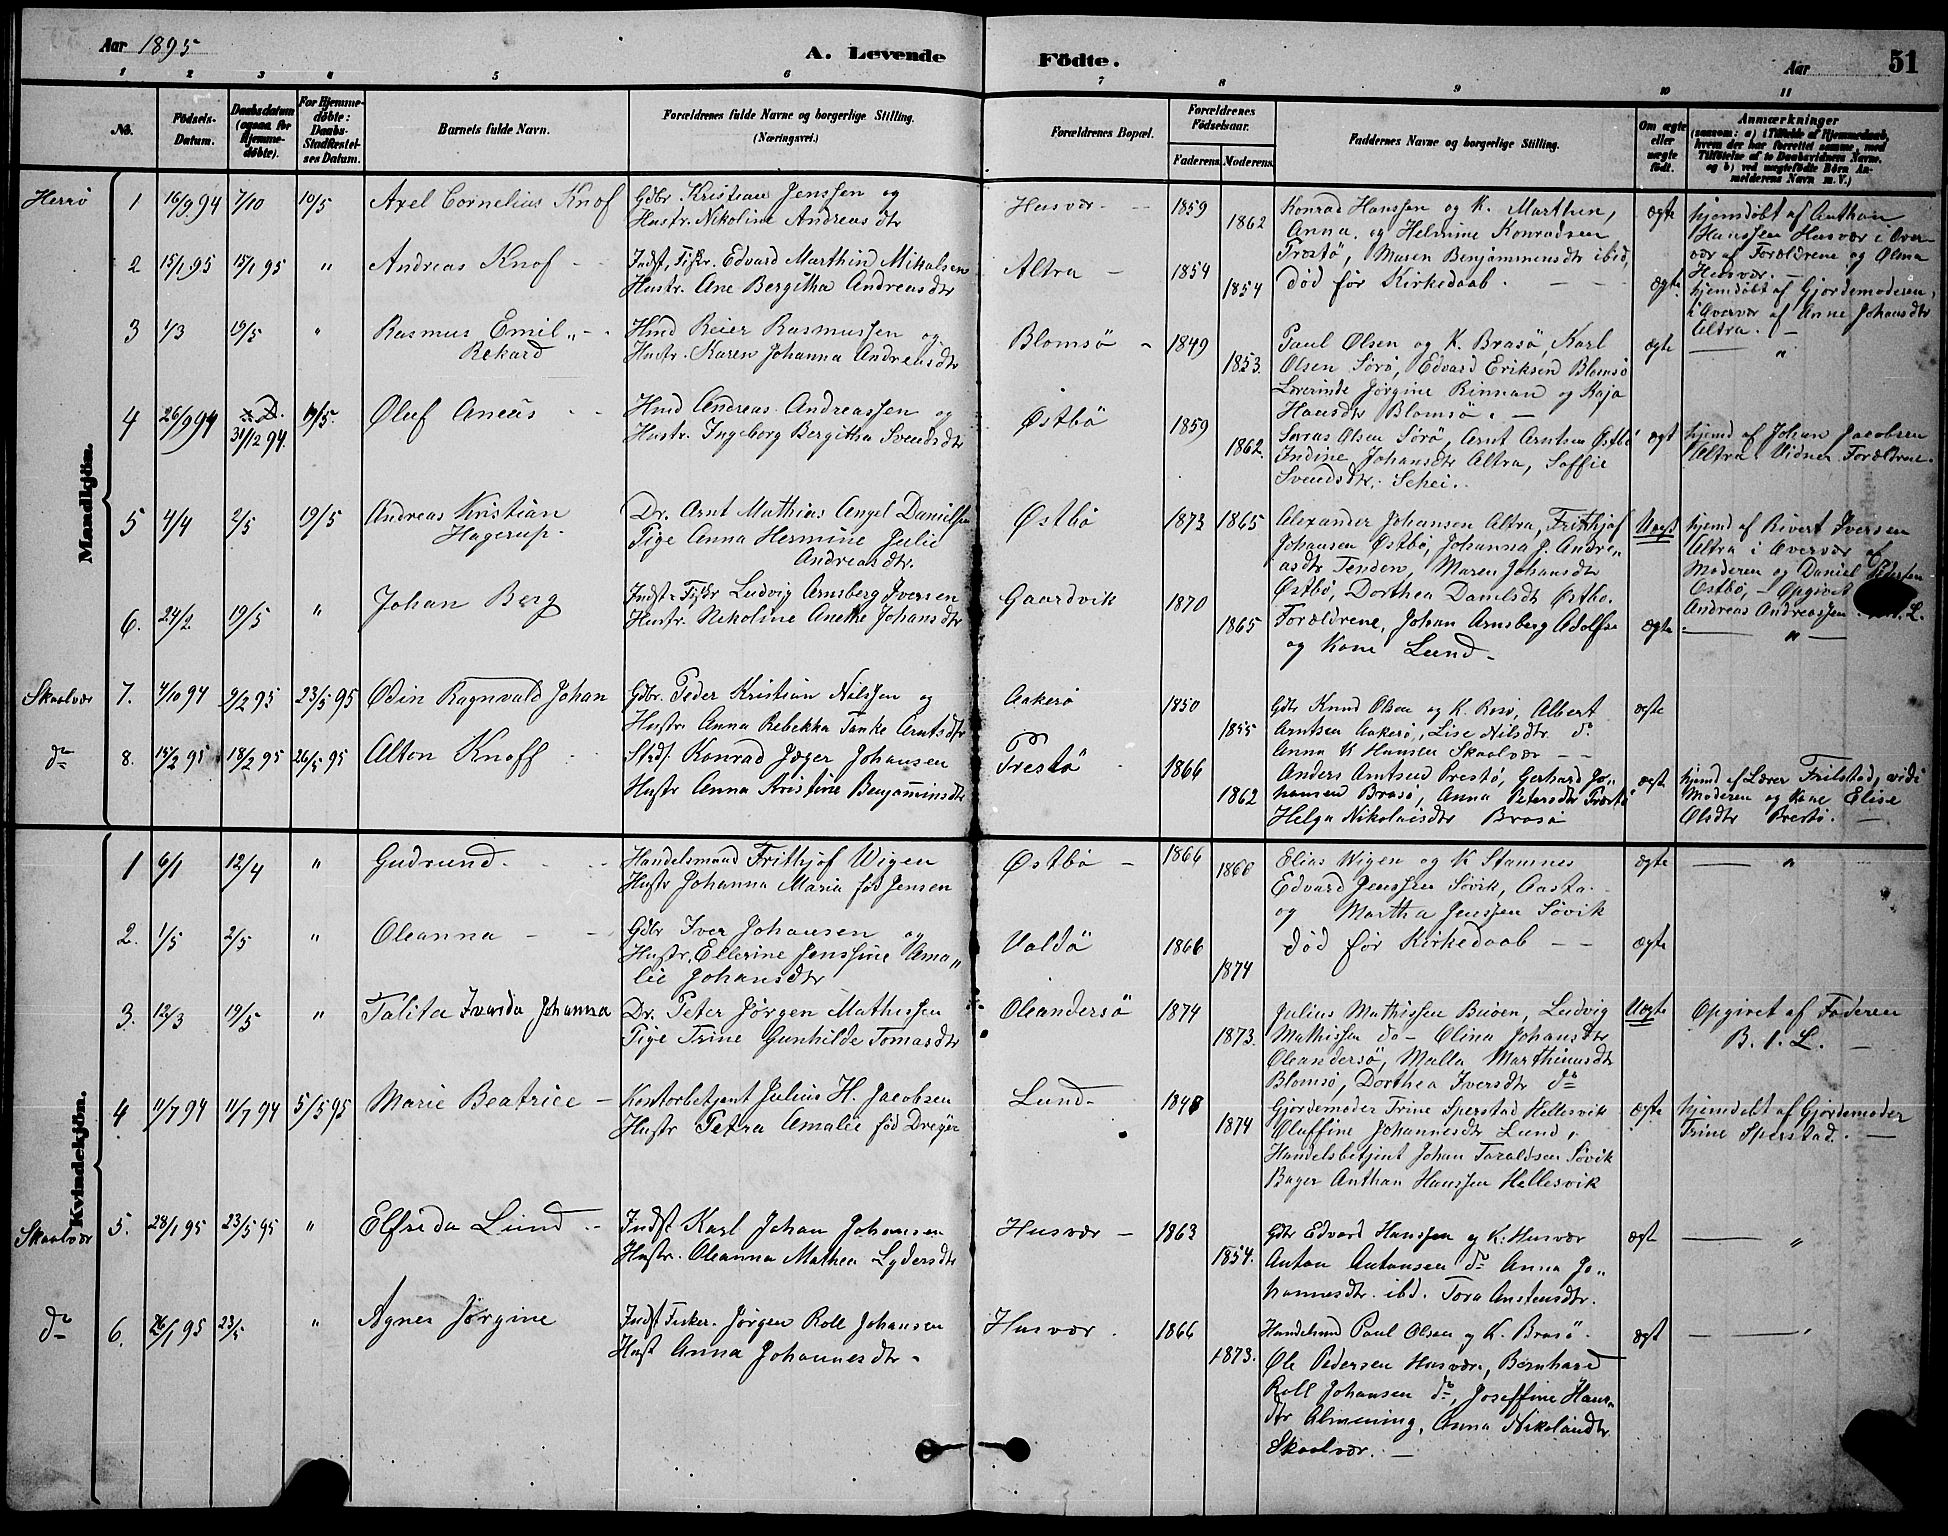 Aar 1895
A. Levende Födte.
Aar
51
1 2 3 4 5 6 7 8 9 10 11
No.
Födsels-Datum.
Daabsdatum (ogsaa for Hjemme-döbte).
For Hjemme-döbte: Daabs-Stadfæstel-ses Datum.
Barnets fulde Navn.
Forældrenes fulde Navne og borgerlige Stilling. (Næringsvei.)
Forældrenes Bopæl.
Forældrenes Födselsaar.
Faderens. Moderens.
Faddernes Navne og borgerlige Stilling.
Om ægte eller uægte födt.
Anmærkninger
(saasom: a) i Tilfælde af Hjemmedaab, hvem der har forrettet samme, med Tilföielse af to Daabsvidners Navne, og b) ved uægtefödte Börn Anmelderens Navn m. V.)
Mandkjön.
Herrö
1 16/9 94 7/10 19/5 Axel Cornelius Knof
Gdbr Kristian Jenssen og
Hustr. Nikoline Andreasdtr
Husvær - 1859 1862
Konrad Hanssen og K. Marthin,
Anna og Helmine Konradsen
Prostö, Maren Benjaminsdtr ibid,
ægte
hjemdøbt af Anthon
Hanssen Husvær i Over-
vær af Forældrene og Olina
Husvær. -
2 15/1 95 15/1 95 " Andreas Knof -
Indst, Fiskr. Edvard Marthin Mikalsen
Hustr. Ane Bergitha Andreasdtr
Altra - 1854 1854
død før Kirkedaab. - -
ægte
hjemdøbt af Gjordemoderen,
i Overvær af Anne Johansdtr
Altra. -
3 1/3 19/5 " Rasmus Emil
Rekard
Hmd Reier Rasmussen og
Hustr. Karen Johanna Andreasdtr
Blomsö - 1849 1853.
Paul Olsen og K. Brasö, Karl
Olsen Sörö, Edvard Eriksen Blomsö
Lærerinde Jørgine Rinnan og Kaja
Hansdtr Blomsö. -
ægte "
4 26/9 94 31/12 94. 19/5. Oluf Aneus
Hmd Andreas Andreassen og
Hustr. Ingeborg Bergitha Svendsdtr
Østbö 1859 1862.
Olsen Sörö, Arnt Arntsen Østbö
Indine Johansdtr Altra, Soffie
Svendsdtr. Schei.
ægt
hjemd af Johan Jacobsen
Altra. Vidner Forældrene.
5 4/4 2/5 19/5 Andreas Kristian
Hagerup -
Dr. Arnt Mathias Angel Danielsen
Pige Anna Hermine Julie
Andreasdtr.
Østbö 1873 1865
Alexander Johansen Altra, Frithjof
Johansen Østbö, Johanna J. Andre„
asdtr Tenden, Maren Johansdtr
Østbö, Dorthea Danilsdtr Østbo.
Uægt
hjemd af Rivert Iversen
Altra i Overvær af
Moderen og Daniel Pedersen
Østbö, - Opgivet
Andreas Andreassen.
6. 24/2 19/5 " Johan Berg
Indst. Fiskr Ludvig Arnsberg Iversen
Hustr. Nekoline Anethe Johansdtr
Gaardvik 1870 1865
Forældrene, Johan Arnsberg Adolfsen
og Kone Lund -
ægte "
Skaalvær 7. 4/10 94 9/2 95 23/5 95 Odin Ragnvald Johan
Gdbr. Peder Kristian Nilssen og
Hustr Anna Rebekka Tanke Arntsdtr
Aakerø 1850 1855
Gdbr Knud Olsen og K. Rosö, Albert
Arntsen Aakerö, Lise Nilsdtr do
Anna K Hansen Skaalvær - -
ægte
do 8. 15/2 95 18/2 95 26/5 95 Alton Knoff
Strds. Konrad Jæger Johansen
Hustr Anna Kristine Benjaminsdtr
Prestö 1866 1862
Anders Arntsen Prestö, Gerhard Jo„
hansen Brasö, Anna Petersdtr Prestö
Helga Nikolaisdtr Brasö
ægt
hjemd af Lærer Frilstad, vid:
Moderen og Kone Elise
Olsdtr Prestö. -
Kvindekjön.
1 6/1 12/4 " Gudrund. - -
Handelsmand Frithjof Wigen
Hustr Johanna Maria fød Jensen
Østbö - 1866 1866
Elias Wigen og K Stamnes
Edvard Jenssen Søvik, Aasta
og Martha Jenssen Søvik
ægte "
2. 1/5 2/5 " Oleanna - -
Gdbr Iver Johansen og
Hustr. Ellerine Jenssine Ama„
lie Johansdtr
Valdö 1866 1874
død før Kirkedaab - -
ægte
3. 12/3 19/5 " Talita Ivarda Johanna
Dr. Peter Jørgen Mathissen
Pige Trine Gunhilde Tomasdtr
Oleandersö 1874 1873.
Julius Mathissen Buöen, Ludvig
Mathissen do - Olina Johansdtr
Oleandersö, Malla Marthinusdtr
Blomsö, Dorthea Iversdtr do
Uægte
Opgivet af Faderen
B. 1. L. -
4 11/7 94 11/7 94 5/5 95 Marie Beatrice -
Kontorbetjent Julius H. Jacobsen
Hustr Petra Amalie fød Dreyer
Lund - 1848 1874
Gjordemoder Trine Sperstad Hellesvik
Oluffine Johannesdtr Lund,
Handelsbetjent Johan Taraldsen Søvik
Bager Anthon Hanssen Hellesvik
ægte
hjemdøbt af Gjordemoder
Trine Sperstad. -
Skaalvær 5. 28/1 95 23/5 95 " Elfrida Lund -
Indst Karl Johan Johansen
Hustr. Oleanna Mathea Lydersdtr
Husvær - 1863 1854.
Gdbr Edvard Hanssen og K. Husvær
Anton Antonsen do Anna Jo„
hannesdtr. ibd. Tora Anstensdtr.
ægt "
do 6. 26/1 95 23/5 " Agnes Jørgine
Indst Fisker. Jørgen Roll Johansen
Hust Anna Johannesdtr -
Husvær. 1866 1873.
Handelsmd Paul Olsen og K. Brasö.
Ole Pedersen Husvær, Bernhard
Roll Johansen do, Joseffine Hans„
dtr Almening, Anna Nikolaidtr
Skaalvær. -
ægt "